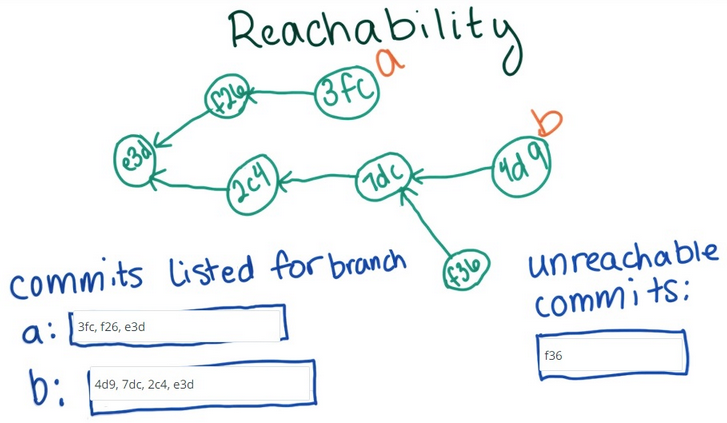 Reachability
a
f26
3fc
b
e3d
2c4
7dc
4d9
f36
commits listed for branch
a: 3fc, f26, e3d
b: 4d9, 7dc, 2c4, e3d
unreachable
commits:
f36